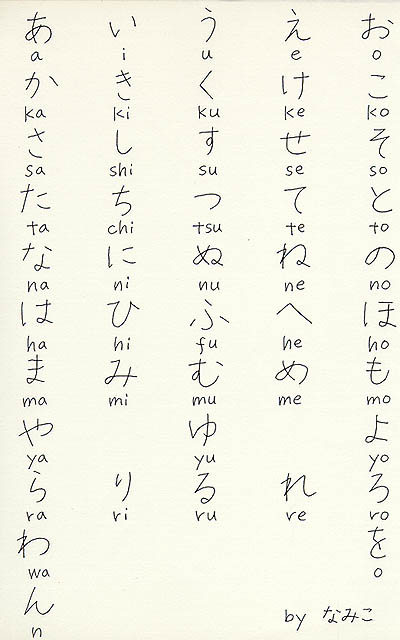 あ い う え お
a i u e o
か き く け こ
ka ki ku ke ko
さ し す せ そ
sa shi su se so
た ち つ て と
ta chi tsu te to
な に ぬ ね の
na ni nu ne no
は ひ ふ へ ほ
ha hi fu he ho
ま み む め も
ma mi mu me mo
や ゆ よ
ya yu yo
ら り る れ ろ
ra ri ru re ro
わ を
wa o
ん
n
by なみこ